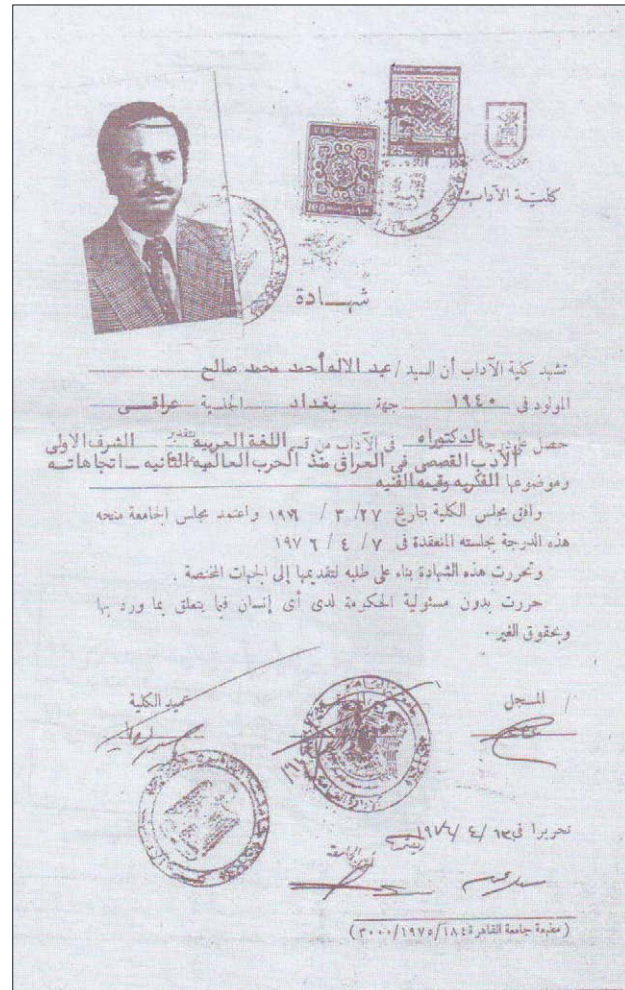 كلية الآداب
شهادة
تشهد كلية الآداب أن السيد / عبد الاله أحمد محمد صالح
المولود فى ١٩٤٠ جهة بغداد الجنسية عراقى
حصل على درجة الدكتوراه فى الآداب من قسم اللغة العربية بتقدير الشرف الاولى
وموضوعها الأدب القصصى فى العراق منذ الحرب العالمية الثانيه ــ اتجاهاته
الفكريه وقيمه الفنيه
وافق مجلس الكلية بتاريخ ٢٧ / ٣ / ١٩٧٦ واعتمد مجلس الجامعة منحه
هذه الدرجة بجلسته المنعقدة فى ٧ / ٤ / ١٩٧٦
وتحررت هذه الشهادة بناء على طلبه لتقديمها إلى الجهات المختصة .
حررت بدون مسئولية الحكومة لدى أى إنسان فيما يتعلق بما ورد بها
وبحقوق الغير .
المسجل
عميد الكلية
تحريرا فى ١٣ / ٤ / ١٩٧٦
( مطبعة جامعة القاهرة ١٨٤ / ١٩٧٥ / ٣٠٠٠ )